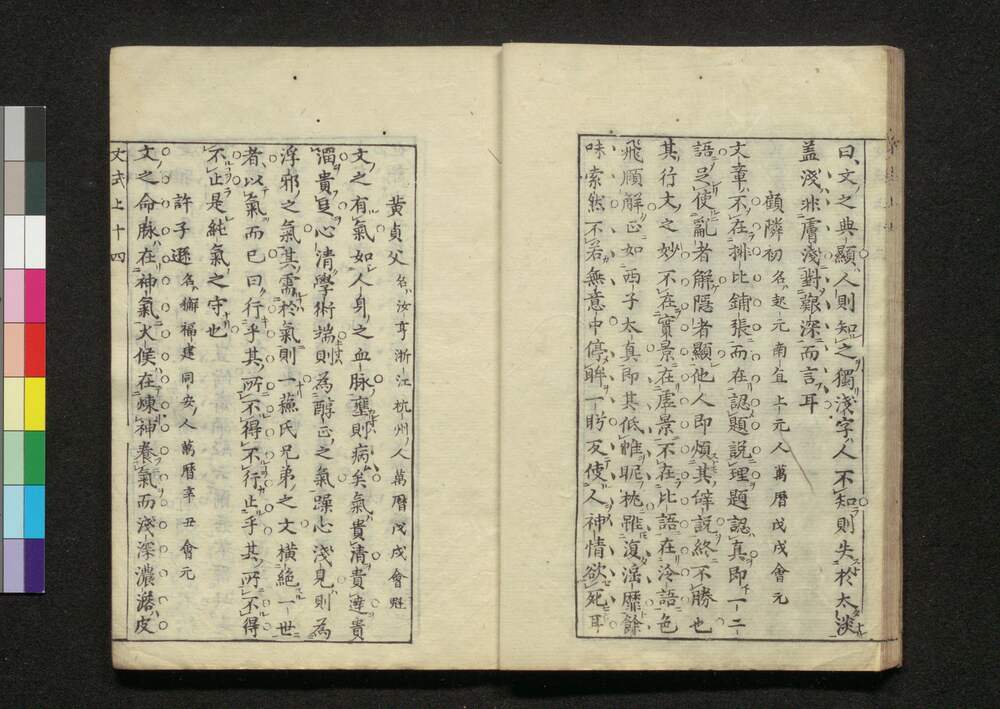 曰文之典顯人則知之獨淺字人不知則失於太淡
盖淺非膚淺對艱深而言耳
顧隣初 名起元南直上元人萬暦戊戌會元
文章不在排比鋪張而在認題説理題認真即一二
語足使亂者解隱者顯他人即煩其辭説終不勝也
其行文之妙不在實景在虚景不在比語在冷語色
飛頤解正如西子太真即其低帷昵枕雖復滛靡餘
味索然不若無意中停眸一盻反使人神情欲死耳
黄貞父 名汝亨浙江杭州人萬暦戊戌會魁
文之有氣如人身之血脉壅則病矣氣貴清貴達貴
溜貴足心清學術端則為醇正之氣躁心淺見則為
浮邪之氣其需於氣則一蘓氏兄弟之文横絶一世
者以氣而已曰行乎其所不得不行止乎其所不得
不止是純氣之守也
許子遜 名獬福建同安人萬暦辛丑會元
文之命脉在神氣火候在煉神養氣而淺深濃潞皮
文式上十四